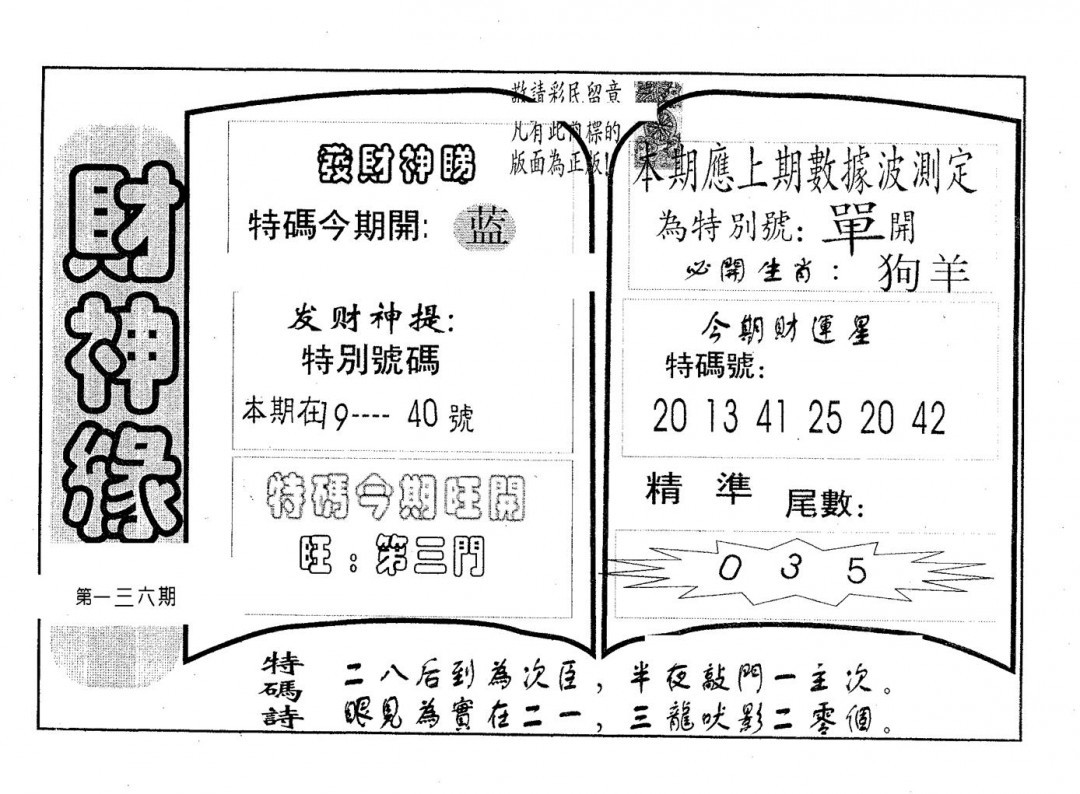 財神緣
第一三六期
敬請彩民留意
凡有此內標的
版面為正版!
發財神睇
特碼今期開: 蓝
发财神提:
特別號碼
本期在19---- 40號
特碼今期旺開
旺:第三門
本期應上期數據波測定
為特別號: 單開
必開生肖: 狗羊
今期財運星
特碼號:
20 13 41 25 20 42
精準 尾數:
0 3 5
特碼詩
二八后到為次臣,半夜敲門一主次。
眼見為實在二一,三龍吠影二零個。